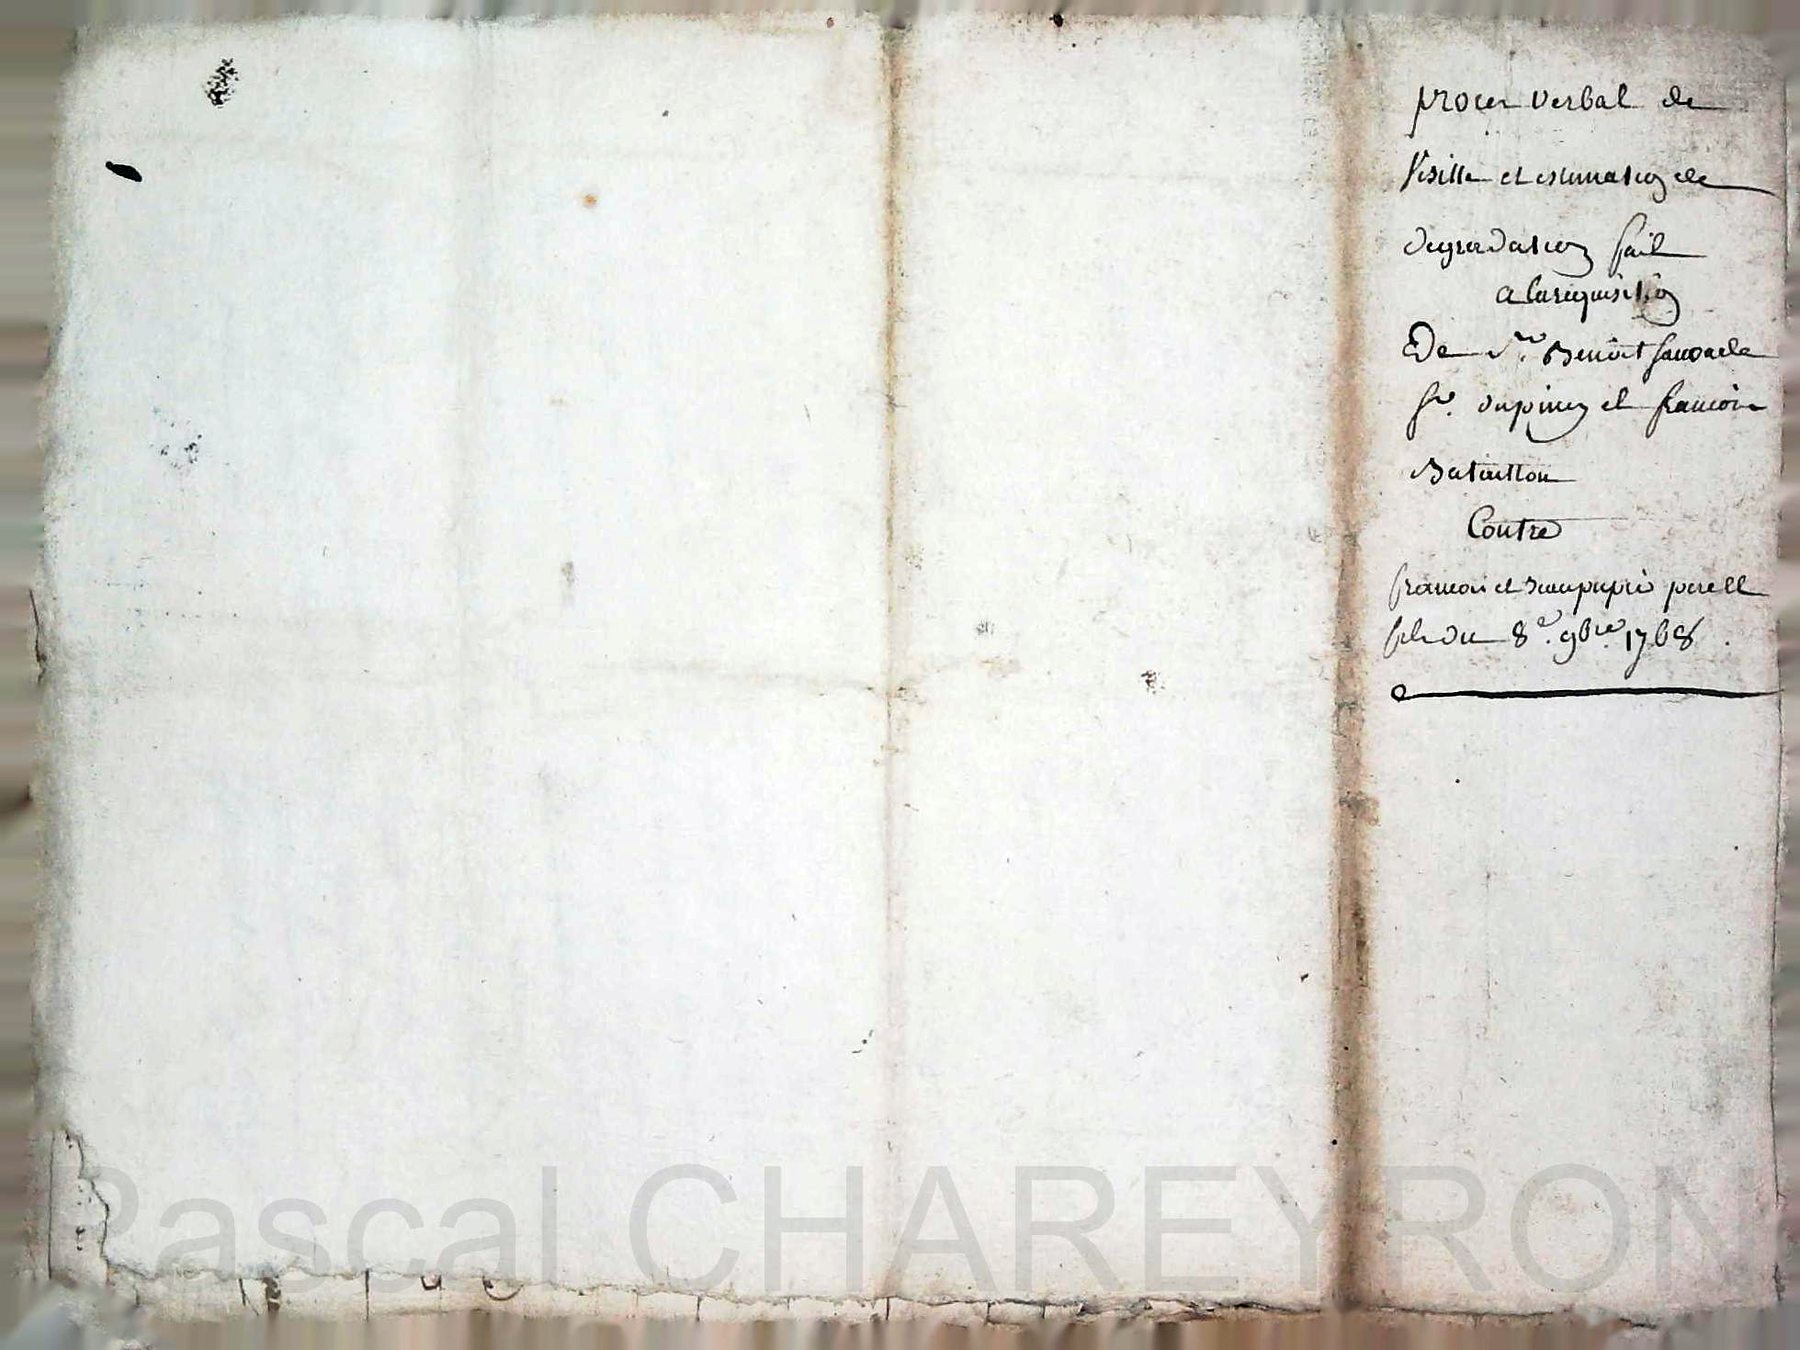 procès verbal de
Visitte et estimation de
degradation fait
a la requisition
De Sr. Benoit Sauvade
Sr. dupinez et francois
Bataillon
Contre
francois et Jean pupié pere et
fils du 8e. 9bre. 1768.
Pascal CHAREYRON